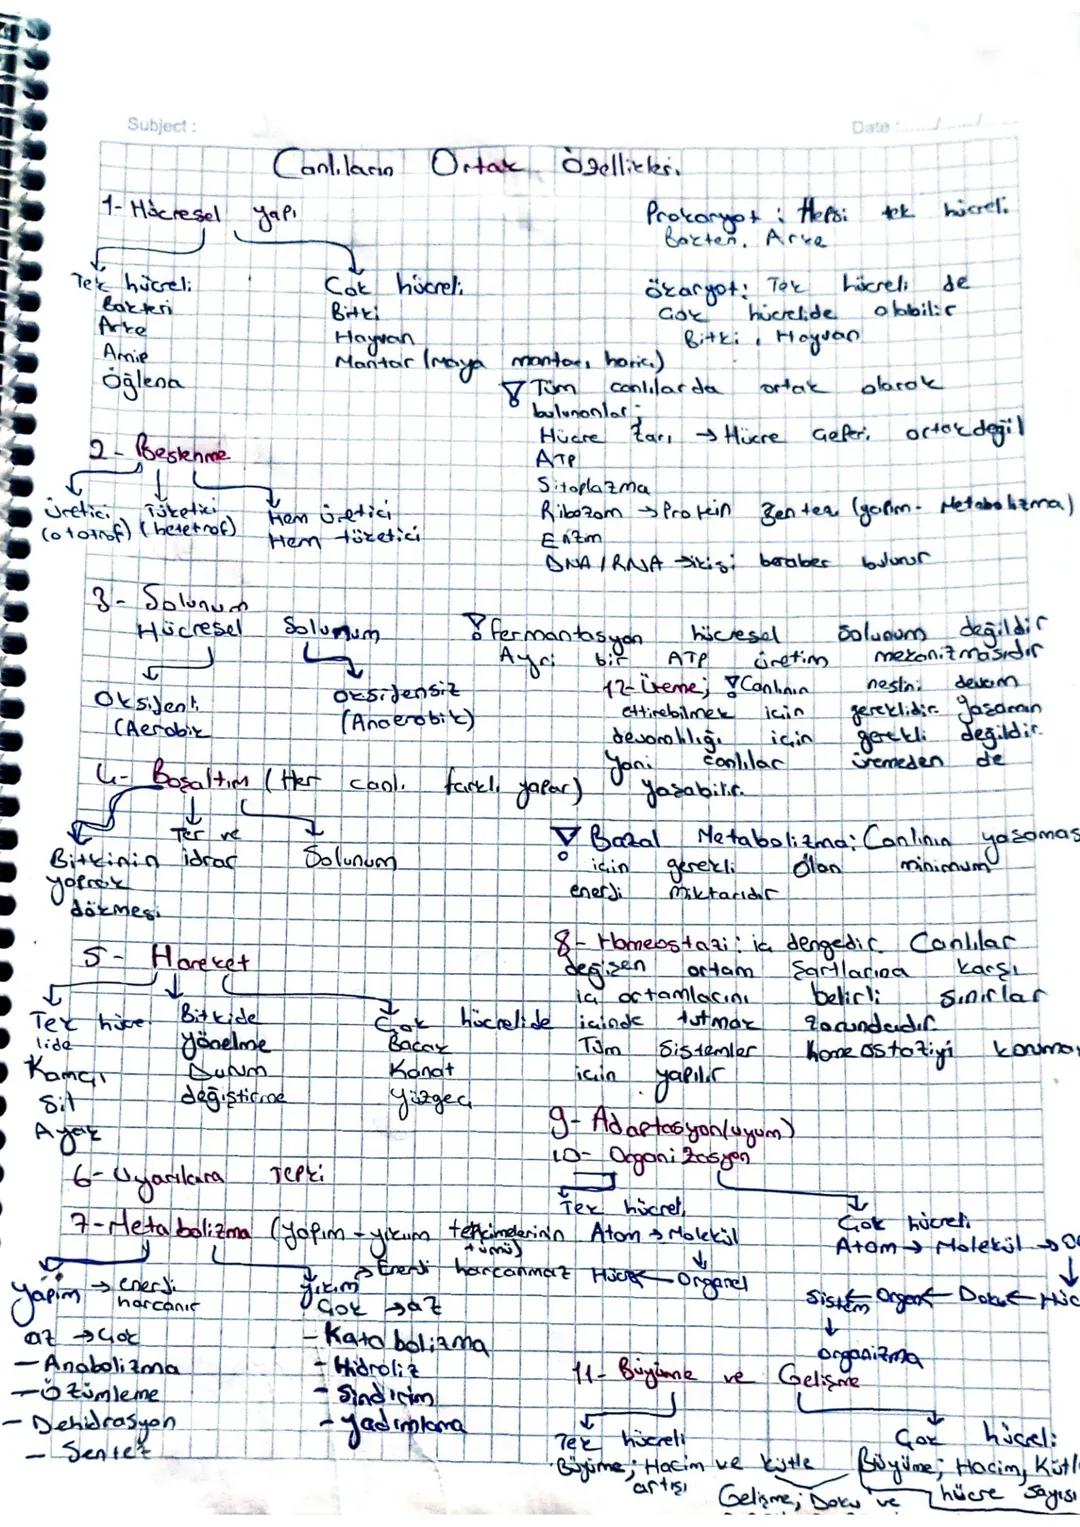 Subject :
Date : ..../..../....
Canlıların Ortak Özellikleri
1- Hücresel yapı
Tek hücreli
Bakteri
Arke
Amip
Öğlena
Çok hücreli
Bitki
Hayvan
Mantar (maya mantarı hariç)
Prokaryot : Hepsi tek hücreli
Bakteri, Arke
Ökaryot: Tek hücreli de
Çok hücrelide olabilir
Bitki, Hayvan
Tüm canlılarda ortak olarak
bulunanlar;
Hücre Zarı → Hücre Çeperi ortak değil
ATP
Sitoplazma
Ribozom → Protein Sentezi (yapım - Metabolizma)
Enzim
DNA / RNA → ikisi beraber bulunur
2- Beslenme
Üretici (ototrof)
Tüketici (heterof)
Hem üretici
Hem tüketici
3- Solunum
Hücresel Solunum
Oksijenli
(Aerobik
Oksijensiz
(Anaerobik)
Fermantasyon hücresel solunum değildir
Ayrı bir ATP üretim mekanizmasıdır
12- Üreme; Canlının neslini devam
ettirebilmek için gereklidir. Yaşamın
devamlılığı için gerekli değildir.
Yani canlılar üremeden de
yaşabilir.
4- Boşaltım (Her canlı farklı yapar)
Bitkinin
yaprak
dökmesi
Ter ve
idrar
Solunum
Bazal Metabolizma: Canlının yaşaması
için gerekli olan minimum
enerji miktarıdır
5- Hareket
Tek hücre
lide
Kamçı
Sil
Ayak
Bitkide
yönelme
Durum
değiştirme
Çok hücrelide
Bacak
Kanat
Yüzgeç
8- Homeostazi: iç dengedir. Canlılar
değişen ortam şartlarına karşı
iç ortamlarını belirli sınırlar
içinde tutmak zorundadır
Tüm sistemler homeostaziyi koruma
için yapılır
9- Adaptasyon (uyum)
10- Organizasyon
Tek hücreli
Atom → Molekül
↓
Hücre ← Organel
Çok hücreli
Atom → Molekül → O
↓
Sistem ← Organ ← Doku ← Hüc
↓
organizma
6- Uyarılara Tepki
7- Metabolizma (yapım - yıkım tepkimelerinin
tümü)
Yapım → enerji
harcanır
az → çok
- Anabolizma
- Özümleme
- Dehidrasyon
- Sentez
Yıkım → Enerji harcanmaz
Çok → az
- Katabolizma
- Hidroliz
- Sindirim
- Yadımlama
11- Büyüme ve Gelişme
Tek hücreli
Büyüme; Hacim ve kütle
artışı
Çok hücreli
Büyüme; Hacim, Kütl
hücre sayısı
Gelişme; Doku ve